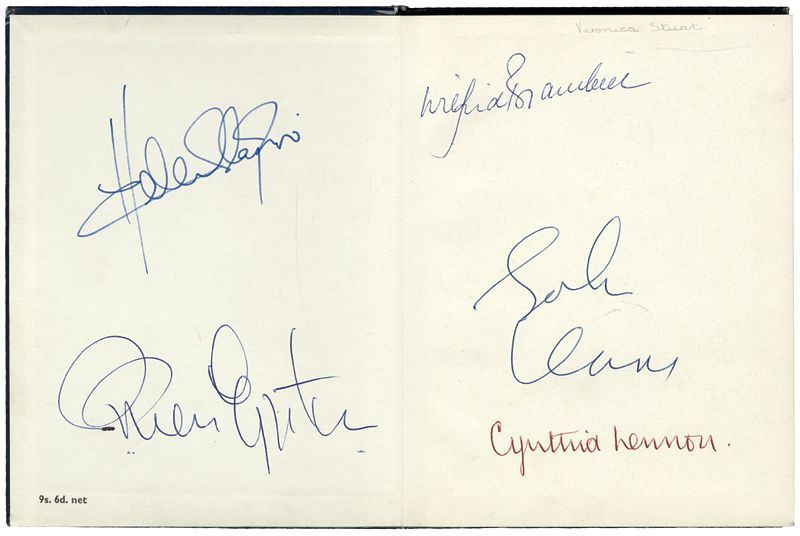 Helen Shapiro
Brian Epstein
9s. 6d. net
Veronica Stuart
Wilfrid Brambell
Cynthia Lennon.